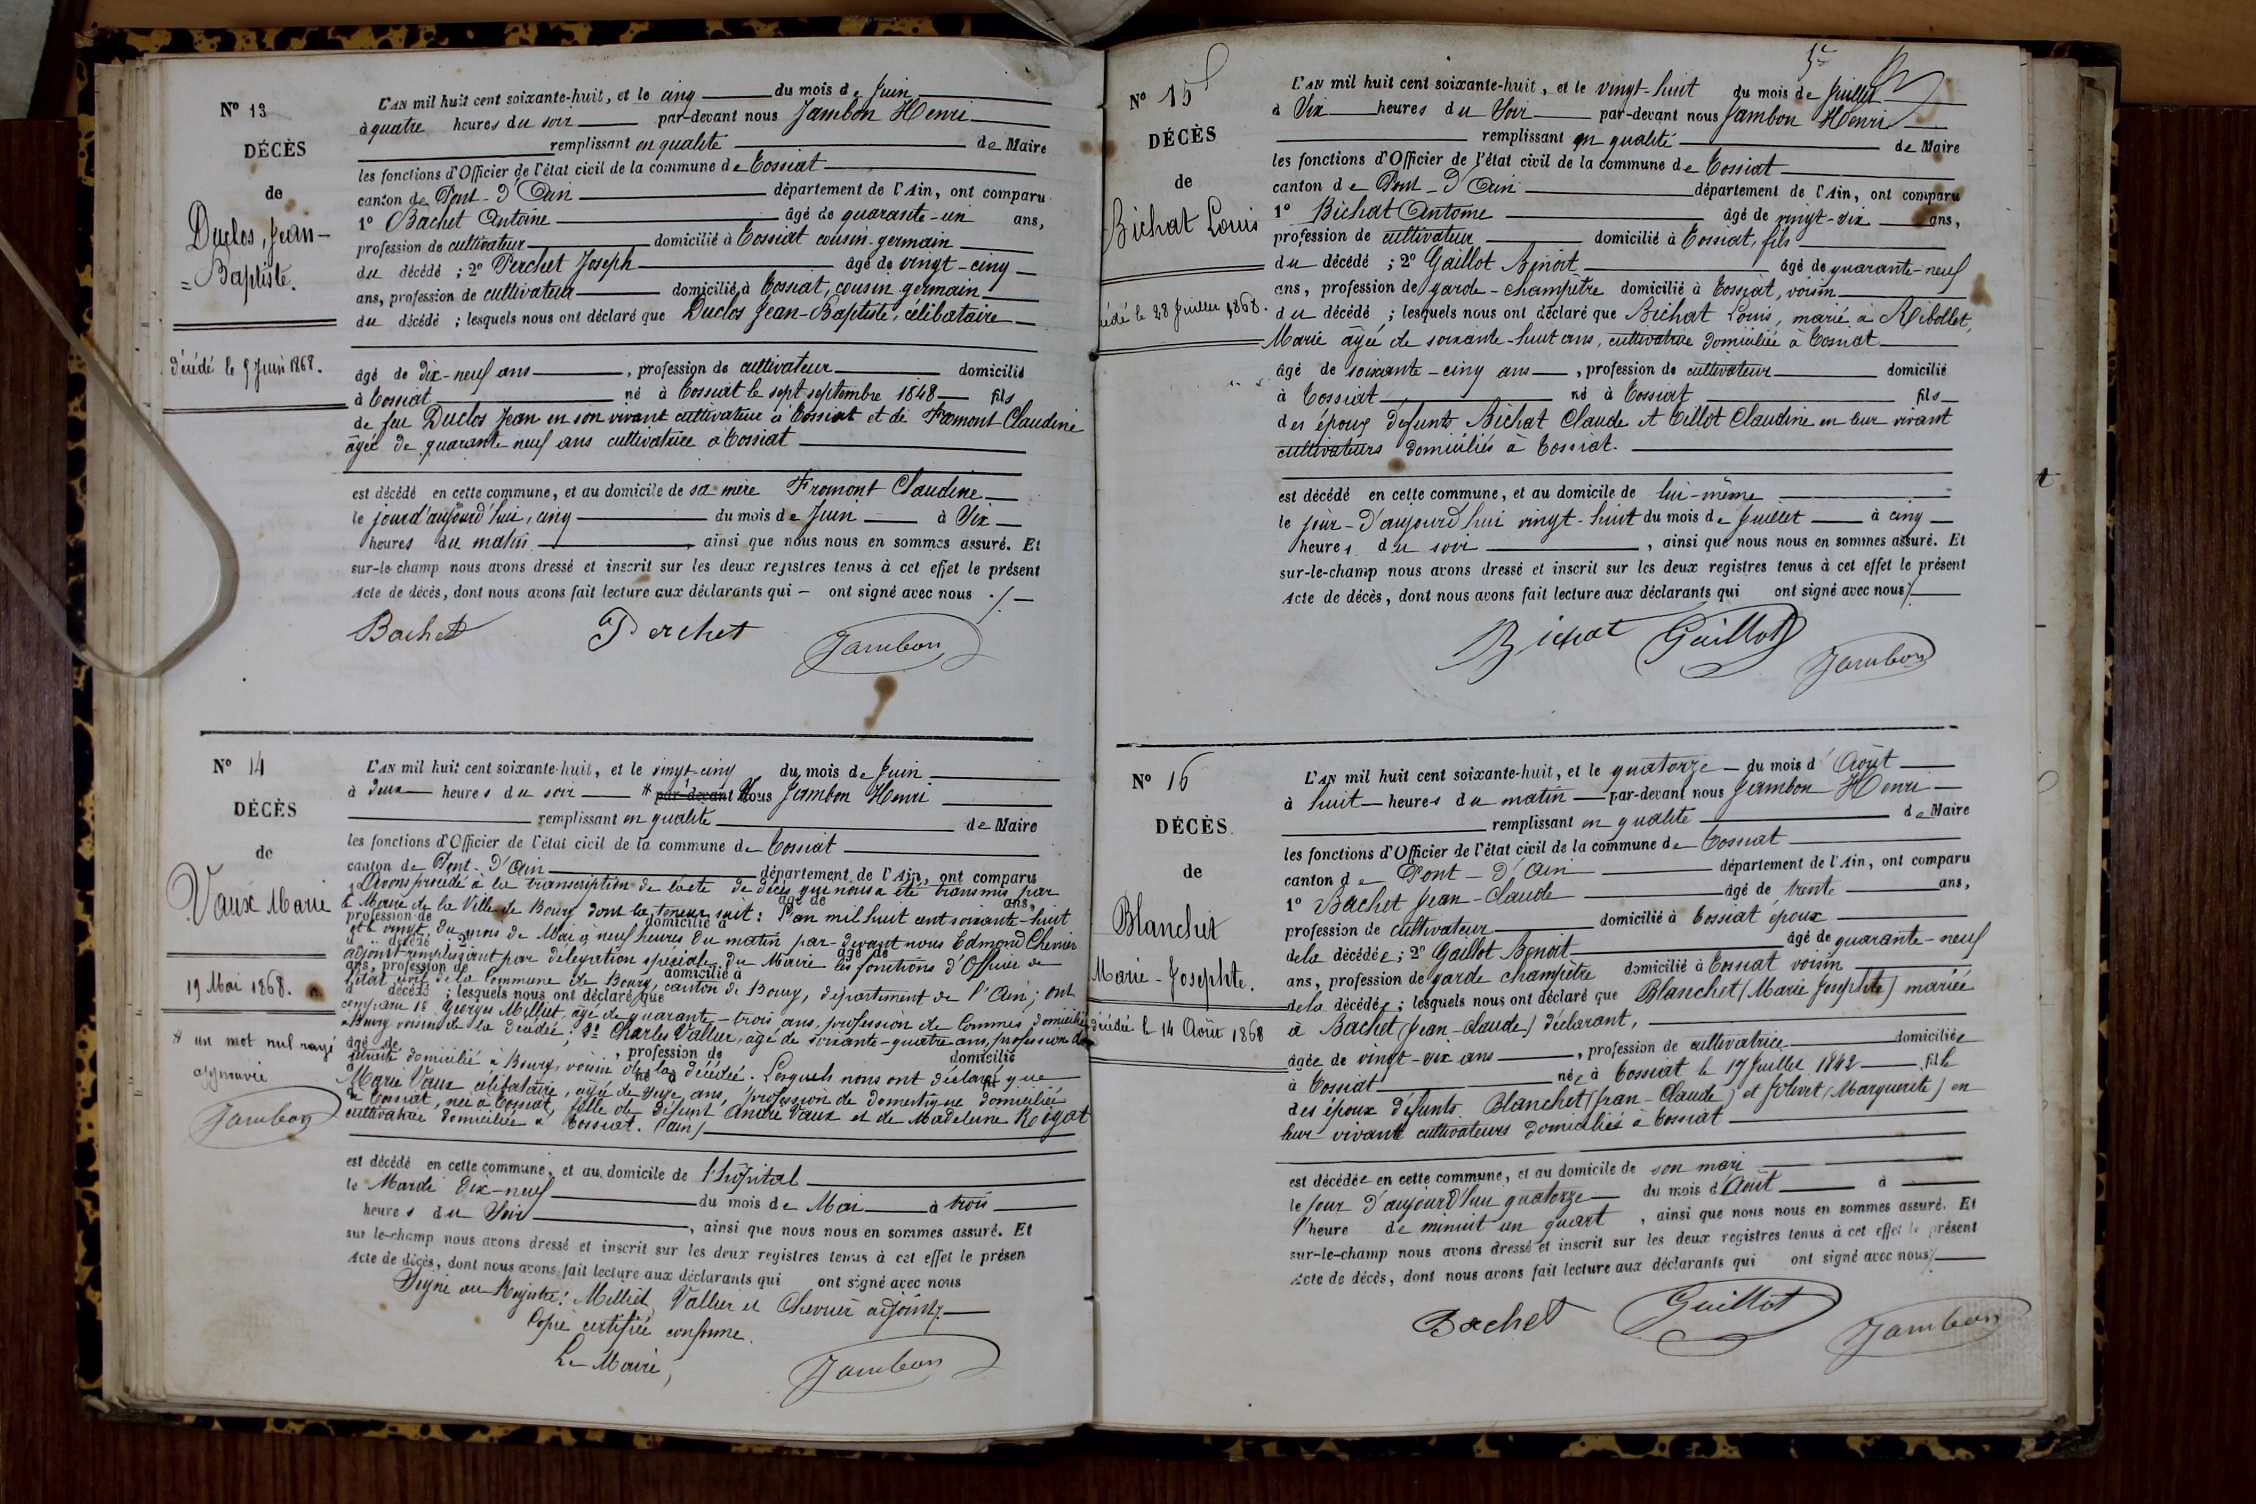 N° 13
DÉCÈS
de
Duclos, Jean-
= Baptiste.
décédé le 5 Juin 1868.
L'AN mil huit cent soixante-huit, et le cinq du mois de Juin
à quatre heures du soir par-devant nous Jambon Henri
remplissant en qualité de Maire
les fonctions d'Officier de l'état civil de la commune de Tossiat
canton de Pont-d'Ain département de l'Ain, ont comparu
1° Bachet Antoine âgé de quarante-un ans,
profession de cultivateur domicilié à Tossiat cousin-germain
du décédé ; 2° Perchet Joseph âgé de vingt-cinq
ans, profession de cultivateur domicilié à Tossiat, cousin germain
du décédé ; lesquels nous ont déclaré que Duclos Jean-Baptiste, célibataire
âgé de dix-neuf ans, profession de cultivateur domicilié
à Tossiat né à Tossiat le sept septembre 1848 fils
de feu Duclos Jean en son vivant cultivateur à Tossiat et de Fromont Claudine
âgée de quarante neuf ans cultivatrice à Tossiat
est décédé en cette commune, et au domicile de sa mère Fromont Claudine
le jour d'aujourd'hui, cinq du mois de Juin à Six
heures du matin, ainsi que nous nous en sommes assuré. Et
sur-le champ nous avons dressé et inscrit sur les deux registres tenus à cet effet le présent
Acte de décès, dont nous avons fait lecture aux déclarants qui - ont signé avec nous ./.
Bachet Perchet Jambon
N° 14
DÉCÈS
de
Vaux Marie
19 Mai 1868.
* un mot nul rayé
approuvé
Jambon
L'AN mil huit cent soixante-huit, et le vingt-cinq du mois de Juin
à deux heures du soir * par-devant Nous Jambon Henri
remplissant en qualité de Maire
les fonctions d'Officier de l'état civil de la commune de Tossiat
canton de Pont-d'Ain département de l'Ain, ont comparu
1° Avons procédé à la transcription de l'acte de décès qui nous a été transmis par
âgé de ans,
le Maire de la Ville de Bourg dont la teneur suit : l'an mil huit cent soixante-huit
profession de domicilié à
et le vingt du mois de Mai à neuf heures du matin par-devant nous Edmond Chevrier
d décédé ; 2° âgé de
adjoint remplissant par délégation spéciale du Maire les fonctions d'Officier de
ans, profession de domicilié à
l'état civil de la Commune de Bourg, canton de Bourg, département de l'Ain ; ont
d décédé ; lesquels nous ont déclaré que
comparu 1° Georges Milliet, âgé de quarante-trois ans, profession de Commis, domicilié
à Bourg voisin de la décédée ; 2° Charles Vallier, âgé de soixante-quatre ans, profession de
âgé de, profession de domicilié
retraité domicilié à Bourg, voisin de la décédée. Lesquels nous ont déclaré que
à né à fil
Marie Vaux célibataire, âgée de ans, profession de domestique domiciliée
à Tossiat, née à Tossiat, fille de défunt André Vaux et de Madeleine Rogat
cultivatrice domiciliée à Tossiat. (ain)
est décédé en cette commune, et au domicile de l'hôpital
le Mardi dix-neuf du mois de Mai à trois
heures du Soir, ainsi que nous nous en sommes assuré. Et
sur le-champ nous avons dressé et inscrit sur les deux registres tenus à cet effet le présen
Acte de décès, dont nous avons fait lecture aux déclarants qui ont signé avec nous
Signé au Registre : Milliet, Vallier et Chevrier adjoint.
Copie certifiée conforme.
Le Maire,
Jambon
N° 15
DÉCÈS
de
Bichat Louis
cédé le 28 Juillet 1868.
L'AN mil huit cent soixante-huit, et le vingt-huit du mois de Juillet
à Six heures du Soir par-devant nous Jambon Henri
remplissant en qualité de Maire
les fonctions d'Officier de l'état civil de la commune de Tossiat
canton de Pont-d'Ain département de l'Ain, ont comparu
1° Bichat Antoine âgé de vingt-six ans,
profession de cultivateur domicilié à Tossiat, fils
du décédé ; 2° Gaillot Benoit âgé de quarante-neuf
ans, profession de garde-champêtre domicilié à Tossiat, voisin
du décédé ; lesquels nous ont déclaré que Bichat Louis, marié à Ribollet,
Marie âgée de soixante-huit ans, cultivatrice domiciliée à Tossiat
âgé de soixante-cinq ans, profession de cultivateur domicilié
à Tossiat né à Tossiat fils
des époux défunts Bichat Claude et Tillot Claudine en leur vivant
cultivateurs domiciliés à Tossiat.
est décédé en cette commune, et au domicile de lui-même
le jour-d'aujourd'hui vingt-huit du mois de Juillet à cinq
heures du soir, ainsi que nous nous en sommes assuré. Et
sur-le-champ nous avons dressé et inscrit sur les deux registres tenus à cet effet le présent
Acte de décès, dont nous avons fait lecture aux déclarants qui ont signé avec nous ./.
Bichat Gaillot Jambon
N° 16
DÉCÈS
de
Blanchet
Marie-Josephte.
décédée le 14 Août 1868
L'AN mil huit cent soixante-huit, et le quatorze du mois d'Août
à huit heures du matin par-devant nous Jambon Henri
remplissant en qualité de Maire
les fonctions d'Officier de l'état civil de la commune de Tossiat
canton de Pont-d'Ain département de l'Ain, ont comparu
1° Bachet Jean-Claude âgé de trente ans,
profession de cultivateur domicilié à Tossiat époux
de la décédée ; 2° Gaillot Benoit âgé de quarante-neuf
ans, profession de garde champêtre domicilié à Tossiat voisin
de la décédée ; lesquels nous ont déclaré que Blanchet (Marie Josephte) mariée
à Bachet (Jean-Claude) déclarant,
âgée de vingt-six ans, profession de cultivatrice domiciliée
à Tossiat née à Tossiat le 17 Juillet 1842 fille
des époux défunts Blanchet (Jean-Claude) et Jolivet (Marguerite) en
leur vivant cultivateurs domiciliés à Tossiat
est décédée en cette commune, et au domicile de son mari
le Jour d'aujourd'hui quatorze du mois d'Août à
l'heure de minuit un quart, ainsi que nous nous en sommes assuré. Et
sur-le-champ nous avons dressé et inscrit sur les deux registres tenus à cet effet le présent
Acte de décès, dont nous avons fait lecture aux déclarants qui ont signé avec nous ./.
Bachet Gaillot Jambon